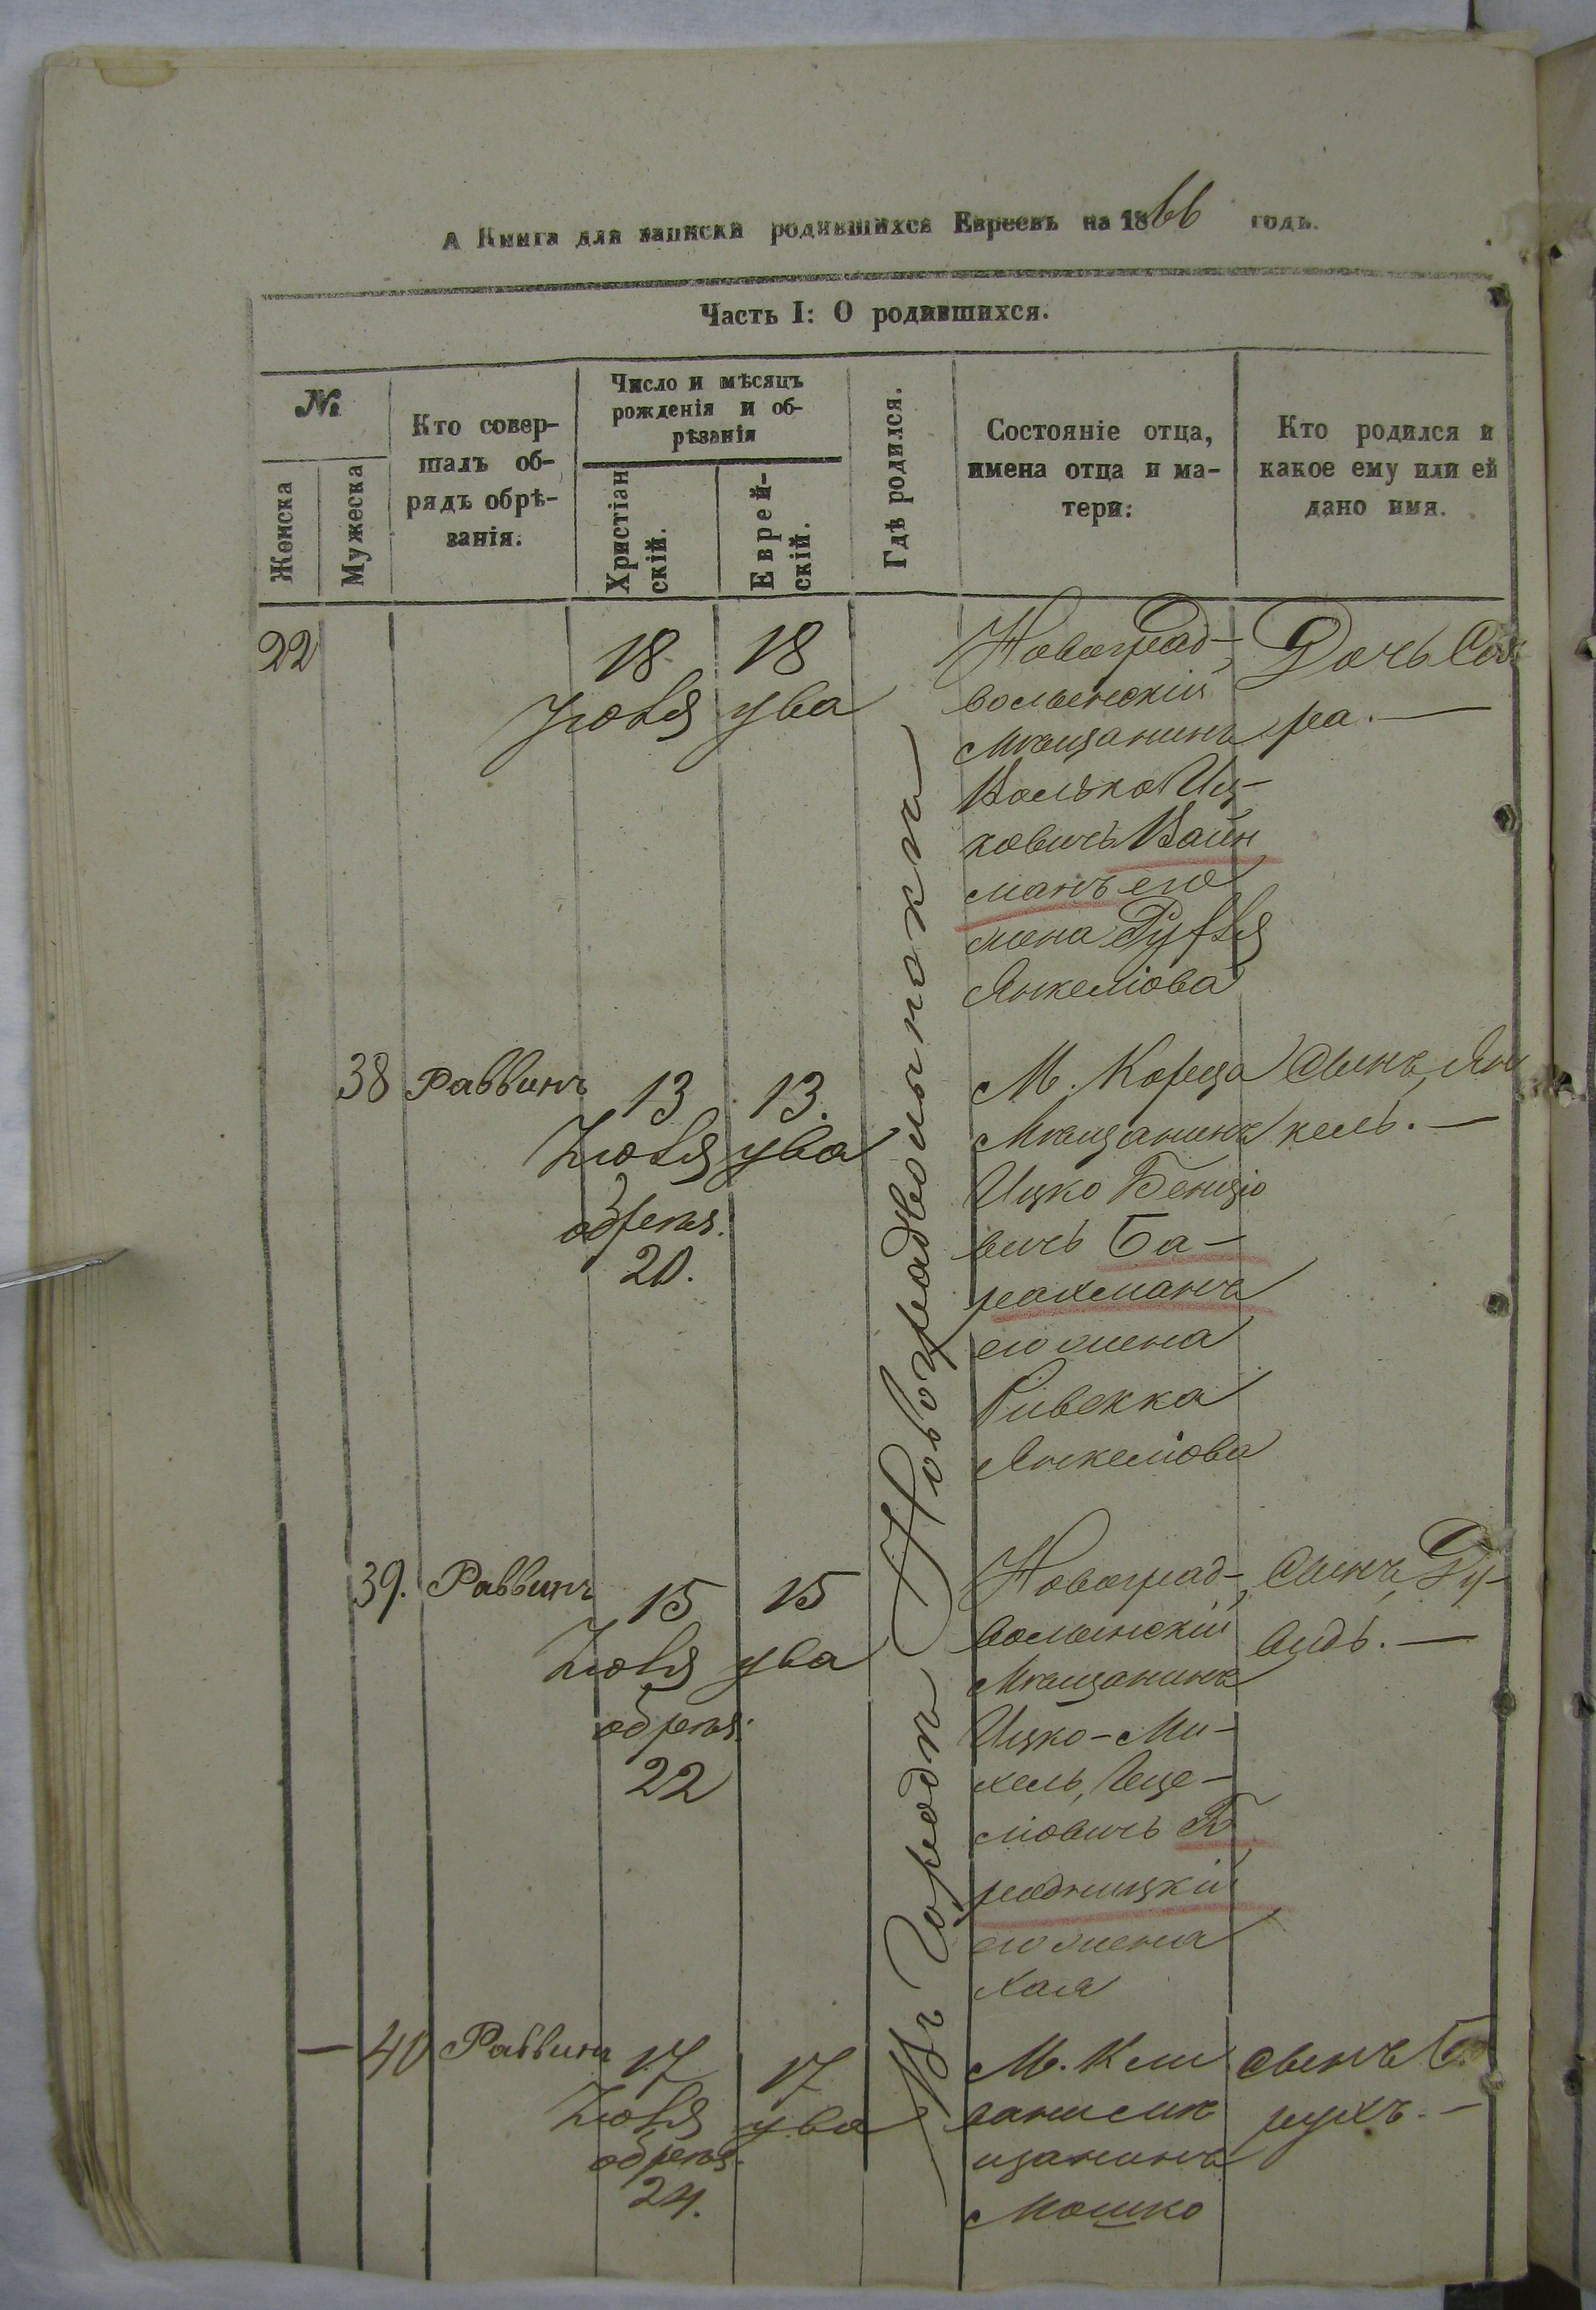 А Книга для записки родившихся Евреевъ на 1866 годъ.
Часть I: О родившихся.
№
Женска
Мужеска
Кто совер-
шалъ об-
рядъ обрѣ-
занія.
Число и мѣсяцъ
рожденія и об-
рѣзанія
Христіан
скій.
Еврей-
скій.
Гдѣ родился.
Состояніе отца,
имена отца и ма-
тери.
Кто родился и
какое ему или ей
дано имя.
Въ Городѣ Новоградволынскѣ
22
18
Іюля
18
Новоград-
волынскій
мѣщанинъ
Волько Иц-
ковичь Вайн
манъ его
жена
Янкеліова
Дочь
ра. —
38
Раввинъ
13
Іюля
обрѣз.
20.
13.
М. Корца
мѣщанинъ
Ицко Бенціо
вичь Ба-
рахманъ
его жена
Ривекка
Янкеліова
Сынъ Ян
кель. —
39.
Раввинъ
15
Іюля
обрѣз.
22
15
Новоград-
волынскій
мѣщанинъ
Ицко-Ми-
хель
ліовичь
родницкій
его жена
Хая
Сынъ
видъ. —
— 40
Раввинъ
17
Іюля
обрѣз.
24.
17
М.
щанинъ
Мошко
Сынъ Ба
рухъ. —